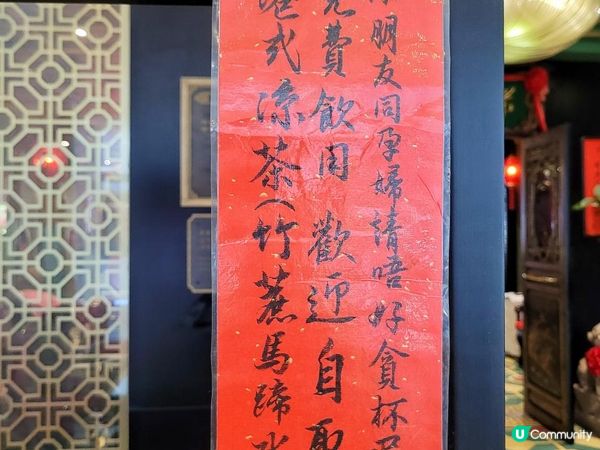 朋友同孕婦請唔好貪杯
免費飲用歡迎自取
港式涼茶(竹蔗馬蹄水
U Community